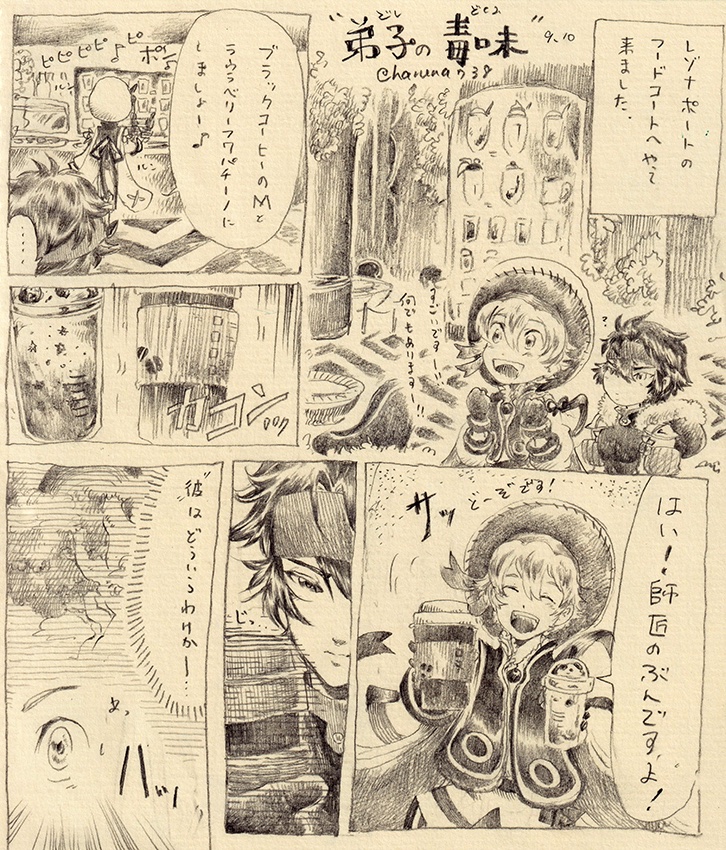 "弟子の毒味"
でし
どくみ
9.10
レゾナポートの
フードコートへやって
来ました。
すごいですー!!
何でもありますー!!
?
ブラックコーヒーのMと
ラウラベリーフワパチーノに
しましょー♪
ピピピピ♪ピポ♪
ルン
ルン
……
ガコンッ
はい!師匠のぶんですよ!
どーぞです!
サッ
じっ…
彼はどういうわけか…
あっ
ハッ